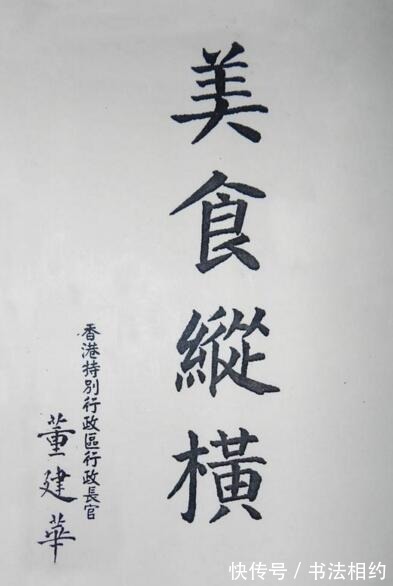 美食縱橫
香港特別行政區行政長官
董建華
快传号／书法相约